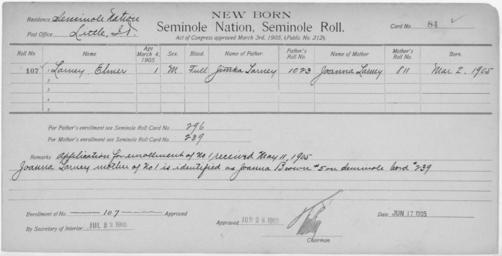 NEW BORN
Residence Seminole Nation
Seminole Nation, Seminole Roll.
Card No. 84
Post Office Little, I.T.
Act of Congress approved March 3rd, 1905, (Public No. 212).
Roll No. Name Age March 4, 1905 Sex. Blood. Name of Father Father's Roll No. Name of Mother Mother's Roll No. Born.
107 1 Larney Elmer 1 M Full Jimka Larney 1023 Joanna Larney 811 Mar 2, 1905
2
3
4
5
For Father's enrollment see Seminole Roll Card No. 296
For Mother's enrollment see Seminole Roll Card No. 239
Remarks Application for enrollment of No 1 received May 11, 1905
Joanna Larney mother of No 1 is identified as Joanna Brown #5 on Seminole Card #239
Enrollment of No. 107 Approved
By Secretary of Interior JUL 22 1905
Approved
Chairman
Date JUN 17 1905